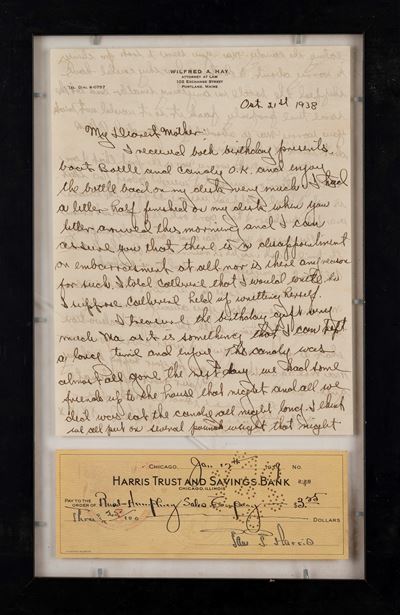 WILFRED A. HAY
ATTORNEY AT LAW
102 EXCHANGE STREET
PORTLAND, MAINE
TEL. DIAL 4-0757
Oct. 21st 1938
My Dearest Mother:
I received both birthday presents
boat Bottle and Candy O.K. and enjoy
the bottle boat on my desk very much. I had
a letter half finished on my desk when you
letter arrived this morning and I can
assure you that there is no disappointment
or embarrassment at all nor is there any reason
for such. I told Catherine that I would write so
I suppose Catherine held up writing herself.
I treasure the birthday gift very
much Ma as it is something that I can kept
a long time and enjoy. The candy was
almost all gone the next day. We had some
friends up to the house that night and all we
did was eat the candy all night long. I think
we all put on several pounds weight that night
CHICAGO, Jan 17th NO.
HARRIS TRUST AND SAVINGS BANK
CHICAGO, ILLINOIS
PAY TO THE
ORDER OF Sales Company
Three
DOLLARS
Paul P. Harris